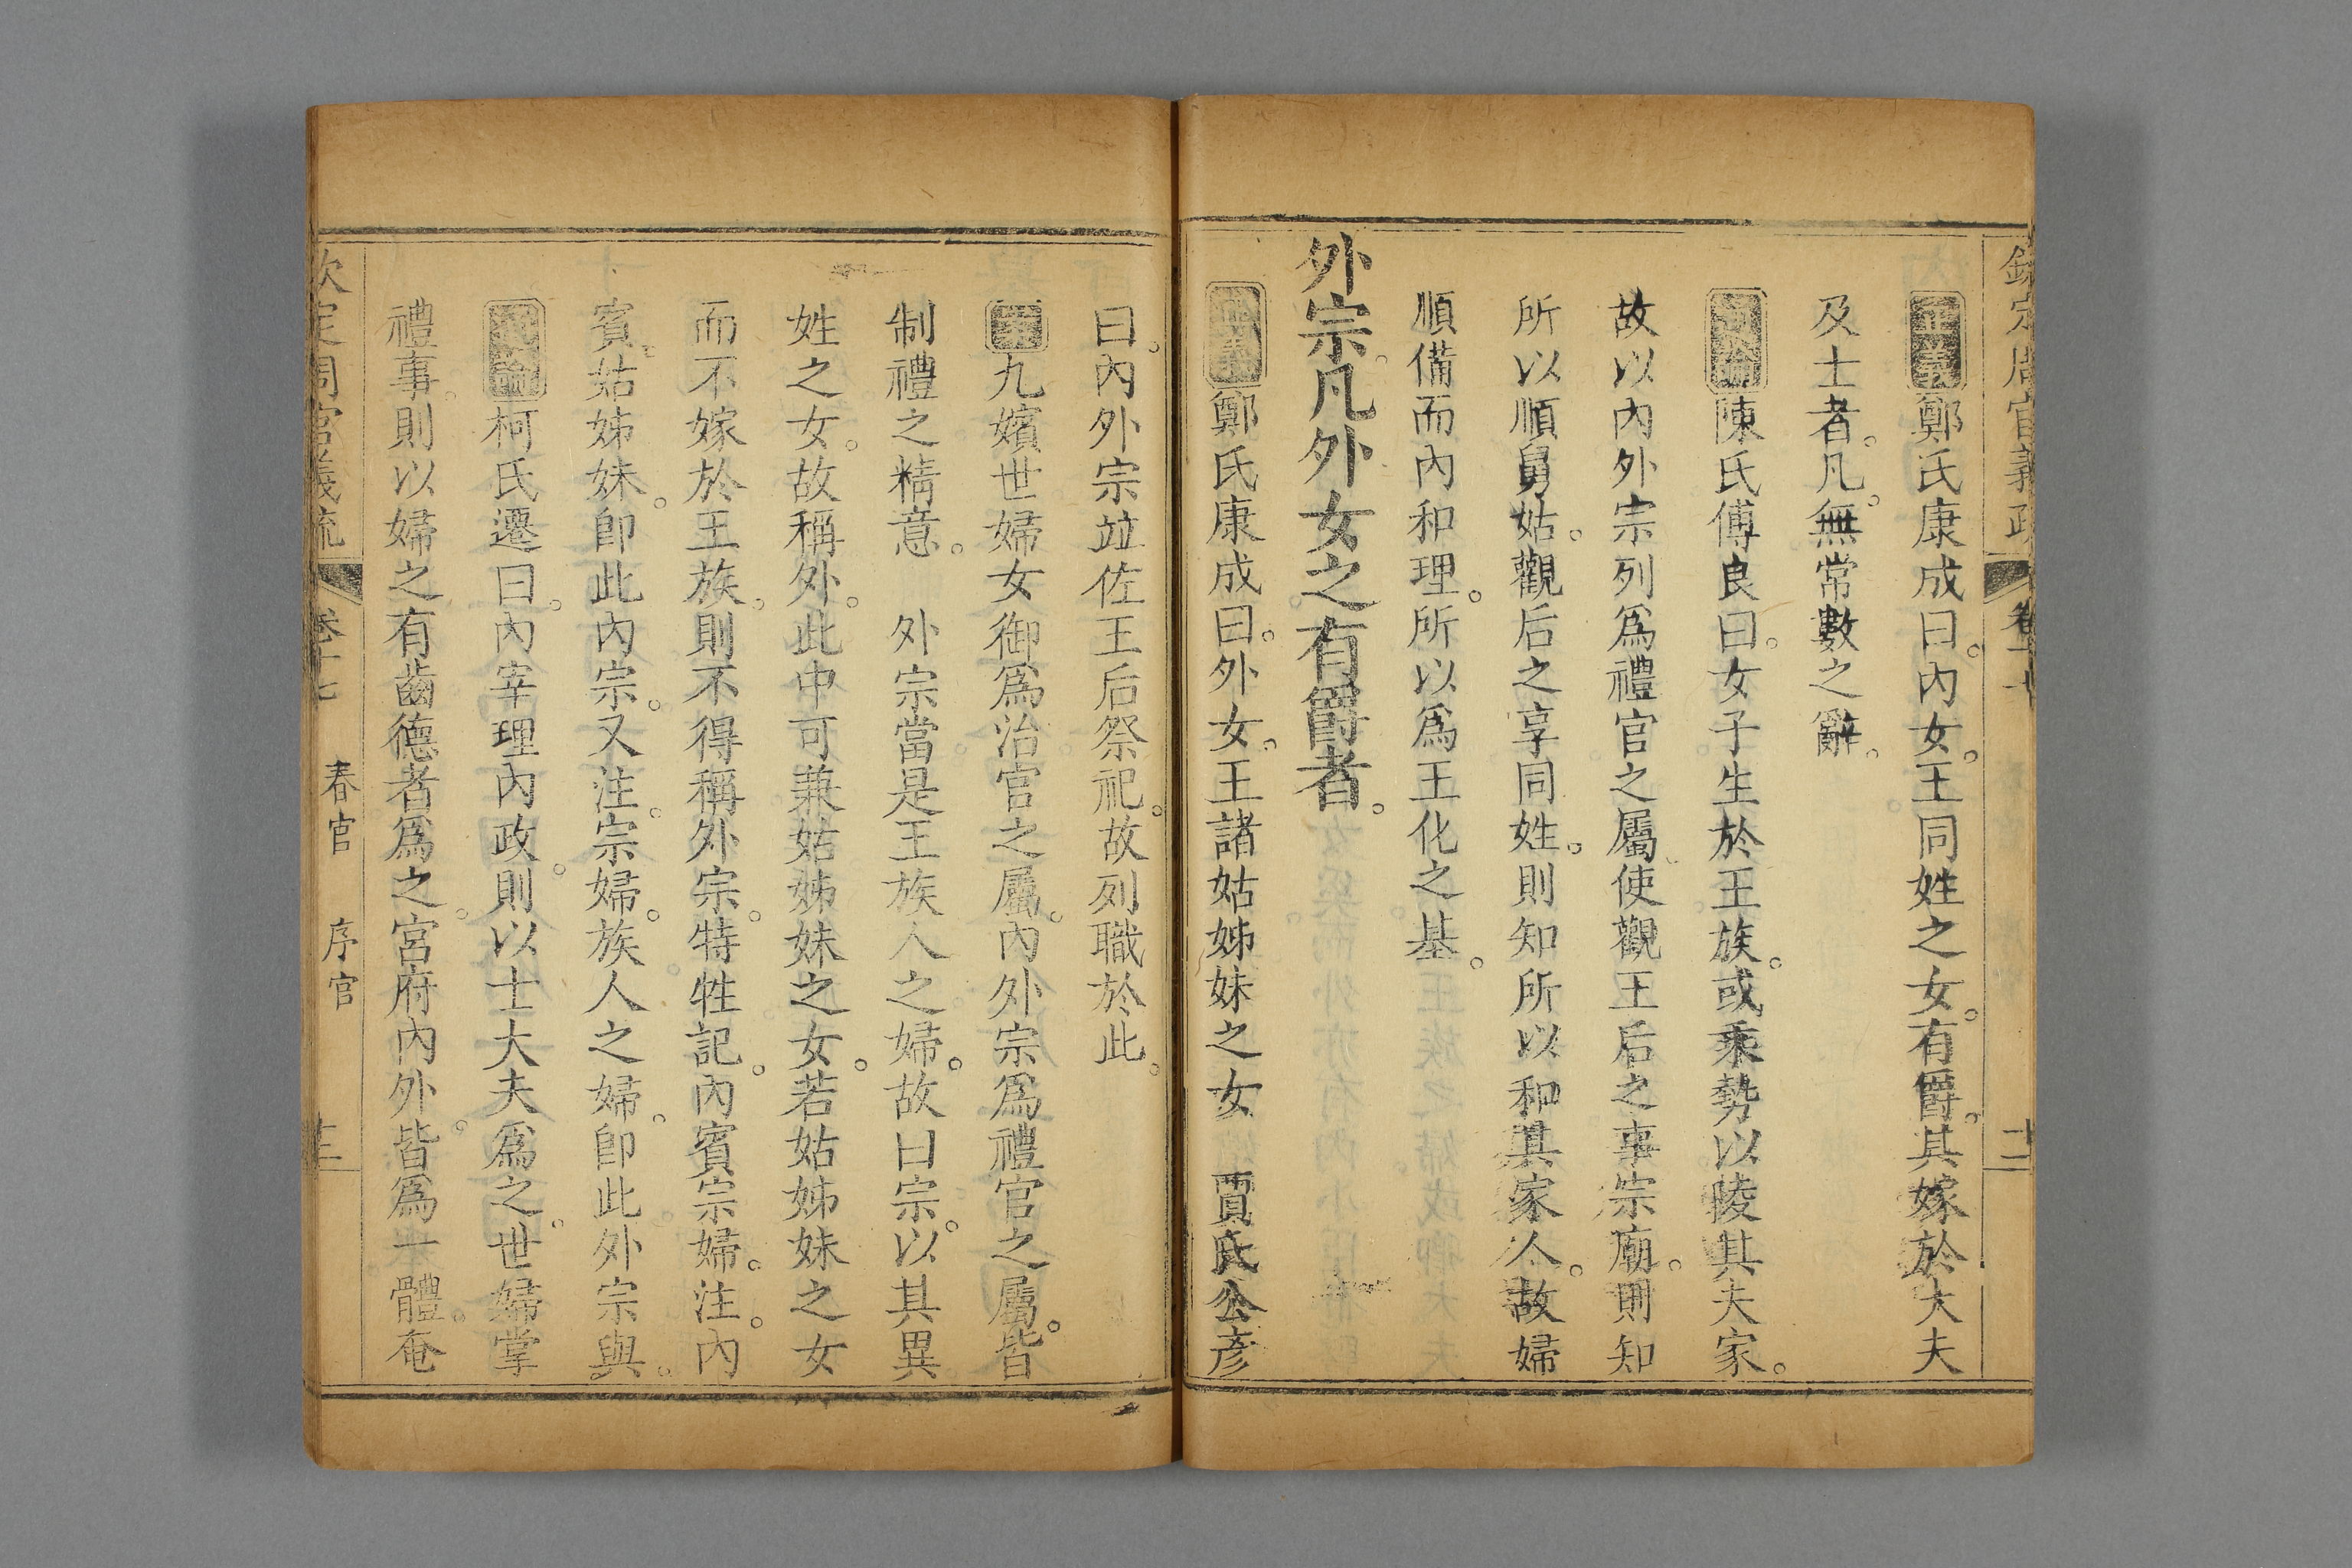 欽定周官義疏 卷十七 十二
正義鄭氏康成曰。內女。王同姓之女。有爵。其嫁於大夫
及士者。凡。無常數之辭。
通論陳氏傅良曰。女子生於王族。或乘勢以陵其夫家。
故以內外宗列爲禮官之屬。使觀王后之事宗廟。則知
所以順舅姑。觀后之享同姓。則知所以和其家人。故婦
順備而內和理。所以爲王化之基。
外宗。凡外女之有爵者。
正義鄭氏康成曰。外女。王諸姑姊妹之女 賈氏公彥
曰。內外宗竝佐王后祭祀。故列職於此。
案九嬪世婦女御爲治官之屬。內外宗爲禮官之屬。皆
制禮之精意。 外宗當是王族人之婦。故曰宗。以其異
姓之女。故稱外。此中可兼姑姊妹之女。若姑姊妹之女
而不嫁於王族。則不得稱外宗。特牲記。內賓宗婦。注。內
賓。姑姊妹。卽此內宗。又注。宗婦。族人之婦。卽此外宗與。
總論柯氏遷曰。內宰理內政。則以士大夫爲之。世婦掌
禮事。則以婦之有齒德者爲之。宮府內外。皆爲一體。奄
欽定周官義疏 卷十七 春官 序官 十三